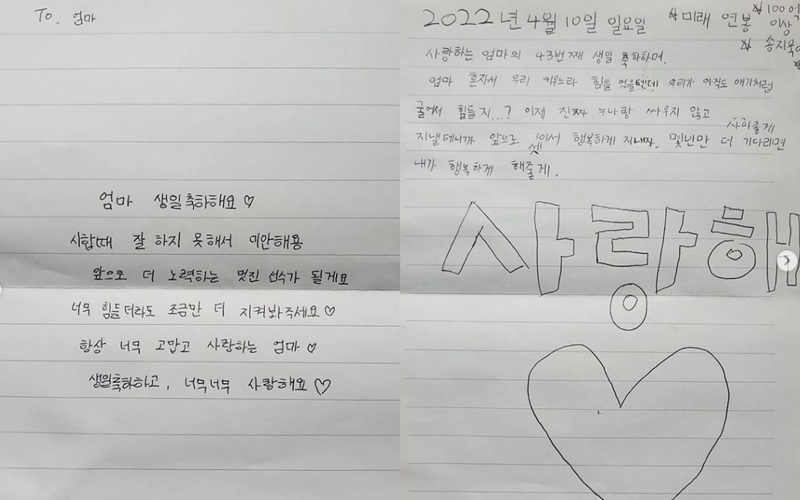 To. 엄마
엄마 생일축하해요♡
시합때 잘 하지 못해서 미안해용
앞으로 더 노력하는 멋진 선수가 될게요
너무 힘들더라도 조금만 더 지켜봐주세요♡
항상 너무 고맙고 사랑하는 엄마♡
생일축하하고, 너무너무 사랑해요♡
2022년 4월 10일 일요일
미래 연봉 100억
이상
사랑하는 엄마의 43번째 생일 축하하며,
엄마 혼자서 우리 키우느라 힘들었을텐데 우리가 아직도 애기처럼
굴어서 힘들지...? 이제 진짜 누나랑 싸우지 않고 사이좋게
지낼테니까 앞으로 셋이서 행복하게 지내자. 몇년만 더 기다리면
내가 행복하게 해줄게.
사랑해